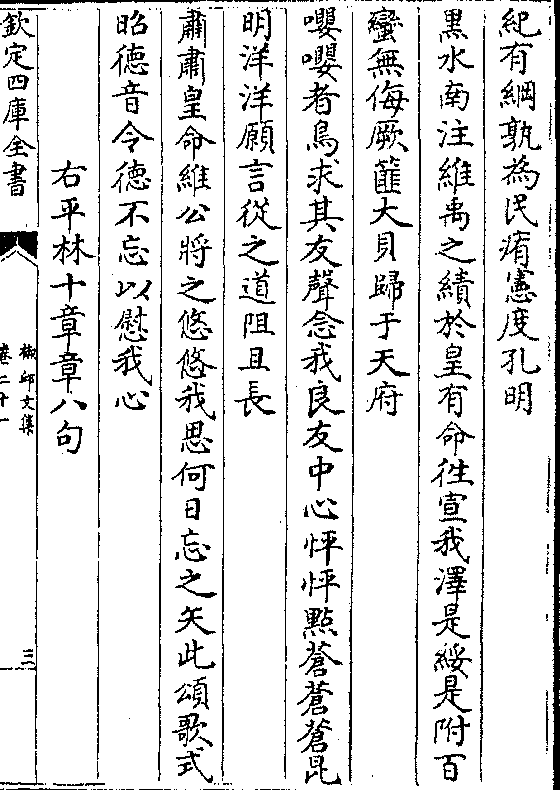 紀有綱孰為民瘠憲度孔明
黒水南注維禹之績於皇有命徃宣我澤是綏是附百
蠻無侮厥篚大貝歸于天府
嚶嚶者鳥求其友聲念我良友中心怦怦㸃蒼蒼蒼昆
明洋洋願言從之道阻且長
肅肅皇命維公將之悠悠我思何日忘之矢此頌歌式
昭德音令德不忘以慰我心
右平林十章章八句
欽定四庫全書
椒邱文集
卷二十一
三